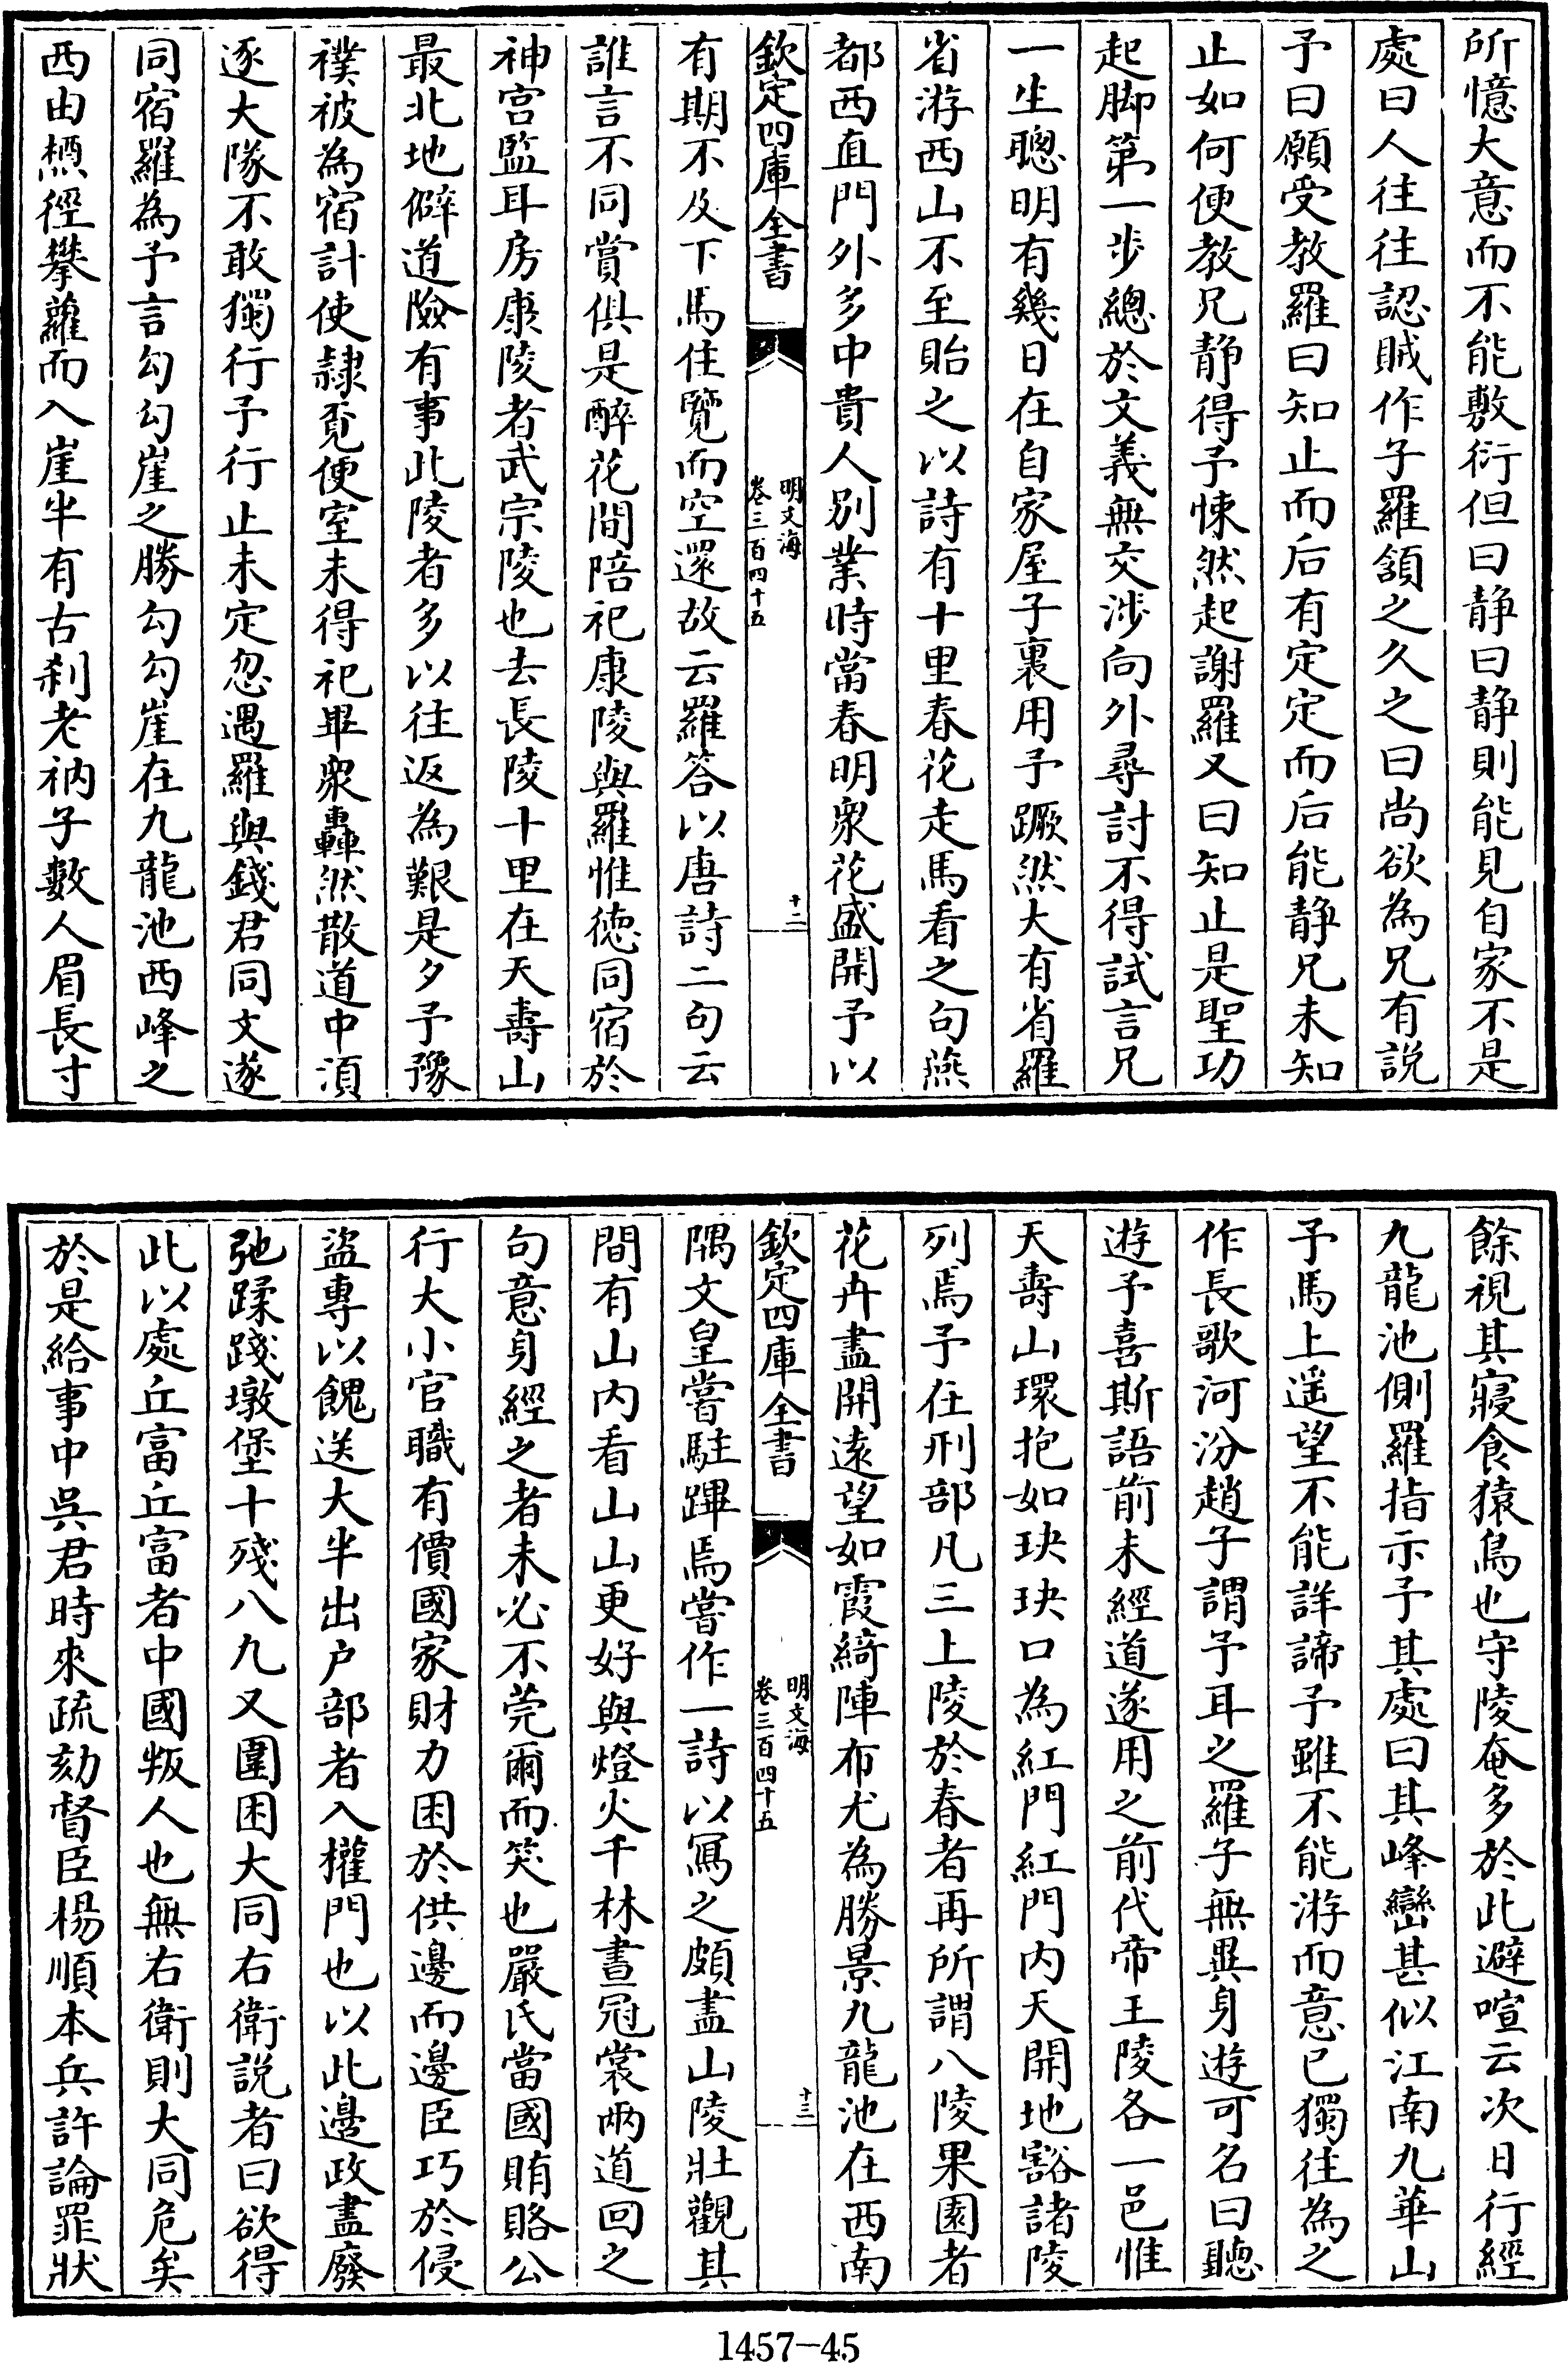 所憶大意而不能敷衍但曰静曰静則能見自家不是
處曰人往往認賊作子羅頷之久之曰尚欲為兄有説
予曰願受教羅曰知止而后有定定而后能静兄未知
止如何便教兄静得予悚然起謝羅又曰知止是聖功
起脚第一步總於文義無交涉向外尋討不得試言兄
一生聰明有幾日在自家屋子裏用予蹶然大有省羅
省游西山不至貽之以詩有十里春花走馬看之句燕
都西直門外多中貴人别業時當春明衆花盛開予以
欽定四庫全書
明文海
卷三百四十五
十二
有期不及下馬住覽而空還故云羅答以唐詩二句云
誰言不同賞俱是醉花間陪祀康陵與羅惟徳同宿於
神宫監耳房康陵者武宗陵也去長陵十里在天壽山
最北地僻道險有事此陵者多以往返為艱是夕予豫
襆被為宿計使隷覔便室未得祀畢衆轟然散道中湏
逐大隊不敢獨行予行止未定忽遇羅與錢君同文遂
同宿羅為予言勾勾崖之勝勾勾崖在九龍池西峰之
西由樵徑攀蘿而入崖半有古刹老衲子數人眉長寸
餘視其寢食猿鳥也守陵奄多於此避喧云次日行經
九龍池側羅指示予其處曰其峰巒甚似江南九華山
予馬上遥望不能詳諦予雖不能游而意已獨往為之
作長歌河汾趙子謂予耳之羅子無異身遊可名曰聽
遊予喜斯語前未經道遂用之前代帝王陵各一邑惟
天壽山環抱如玦玦口為紅門紅門内天開地豁諸陵
列焉予在刑部凡三上陵於春者再所謂八陵果園者
花卉盡開遠望如霞綺陣布尤為勝景九龍池在西南
欽定四庫全書
明文海
卷三百四十五
十三
隅文皇嘗駐蹕焉嘗作一詩以冩之頗盡山陵壯觀其
間有山内看山山更好與燈火千林晝冠裳兩道回之
句意身經之者未必不莞爾而笑也嚴氏當國賄賂公
行大小官職有價國家財力困於供邊而邊臣巧於侵
盜專以餽送大半出户部者入權門也以此邊政盡廢
弛蹂踐墩堡十殘八九又圍困大同右衛説者曰欲得
此以處丘富丘富者中國叛人也無右衛則大同危矣
於是給事中吳君時來疏劾督臣楊順本兵許論罪狀
1457-45